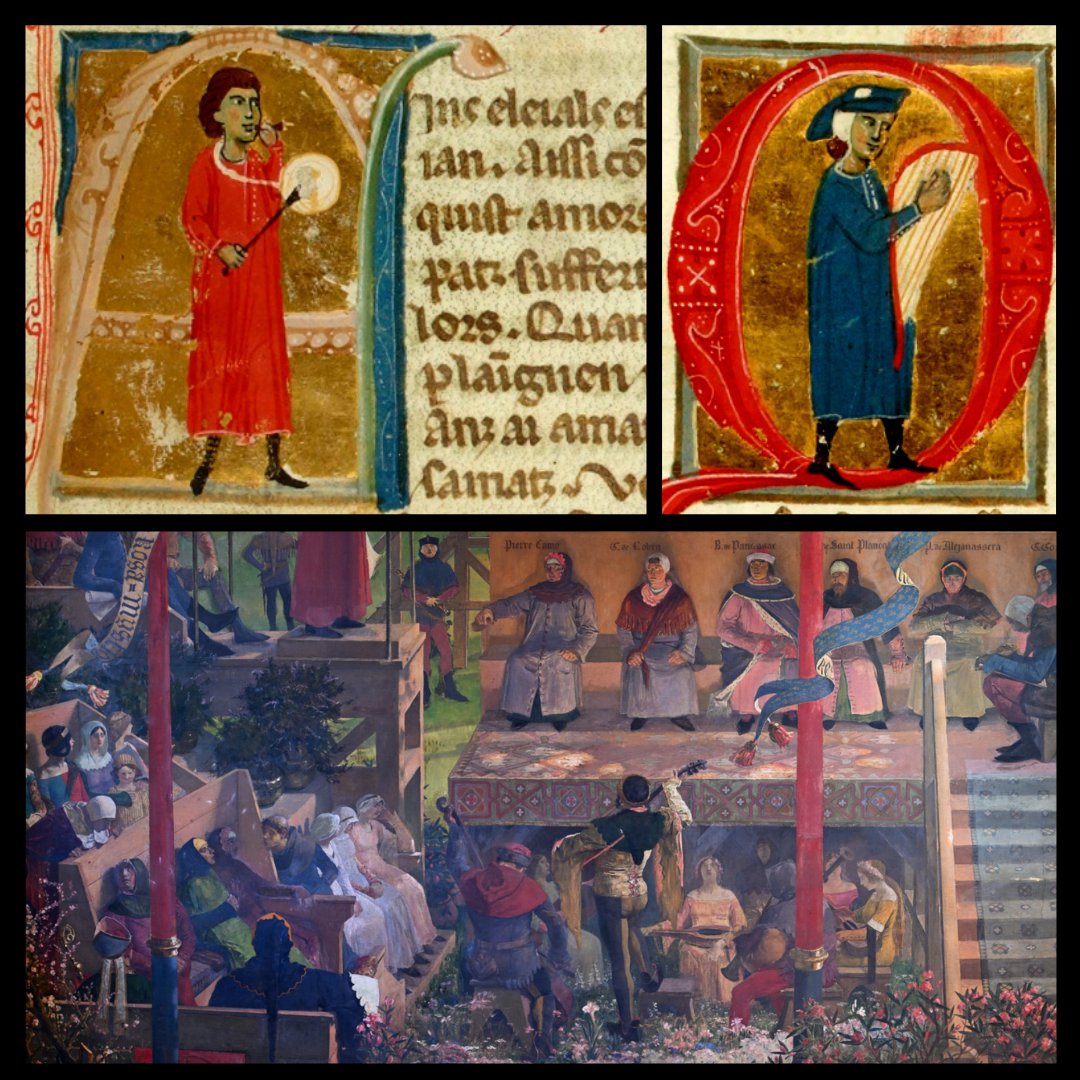 ins eleials es
ian. Aissi cō
quist amors
patz suffert
lors. Quan
plaīgnen
Anz ai ama
samatz. Vo
Pierre Camo
G. de Lobra
B. de Panassac
de Saint Planca
J. de Mejanassera